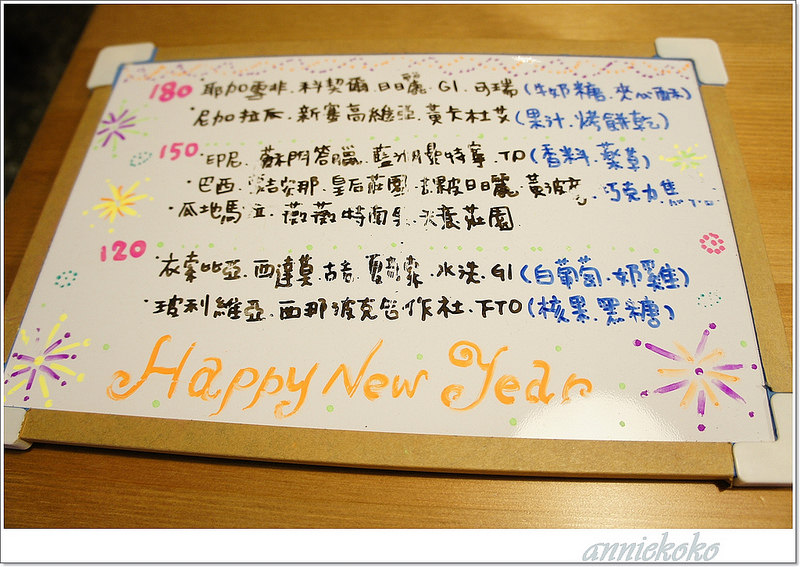 180 耶加雪啡.科契爾.日日曬.G1.可瑞(牛奶糖.夾心酥)
尼加拉瓜.新賽高維亞.黃卡杜艾(果汁.烤餅乾)
150 印尼.蘇門答臘.藍湖曼特寧.TD(香料.藥草)
巴西.皇后莊園.日曬.黃波 巧克力
瓜地馬.薇薇特南.莊園
120
衣索比亞.西達莫.古吉.夏奇索.水洗.G1(白葡萄.奶雞)
玻利維亞.西那波克合作社.FTO(核果.黑糖)
Happy New Year
anniekoko